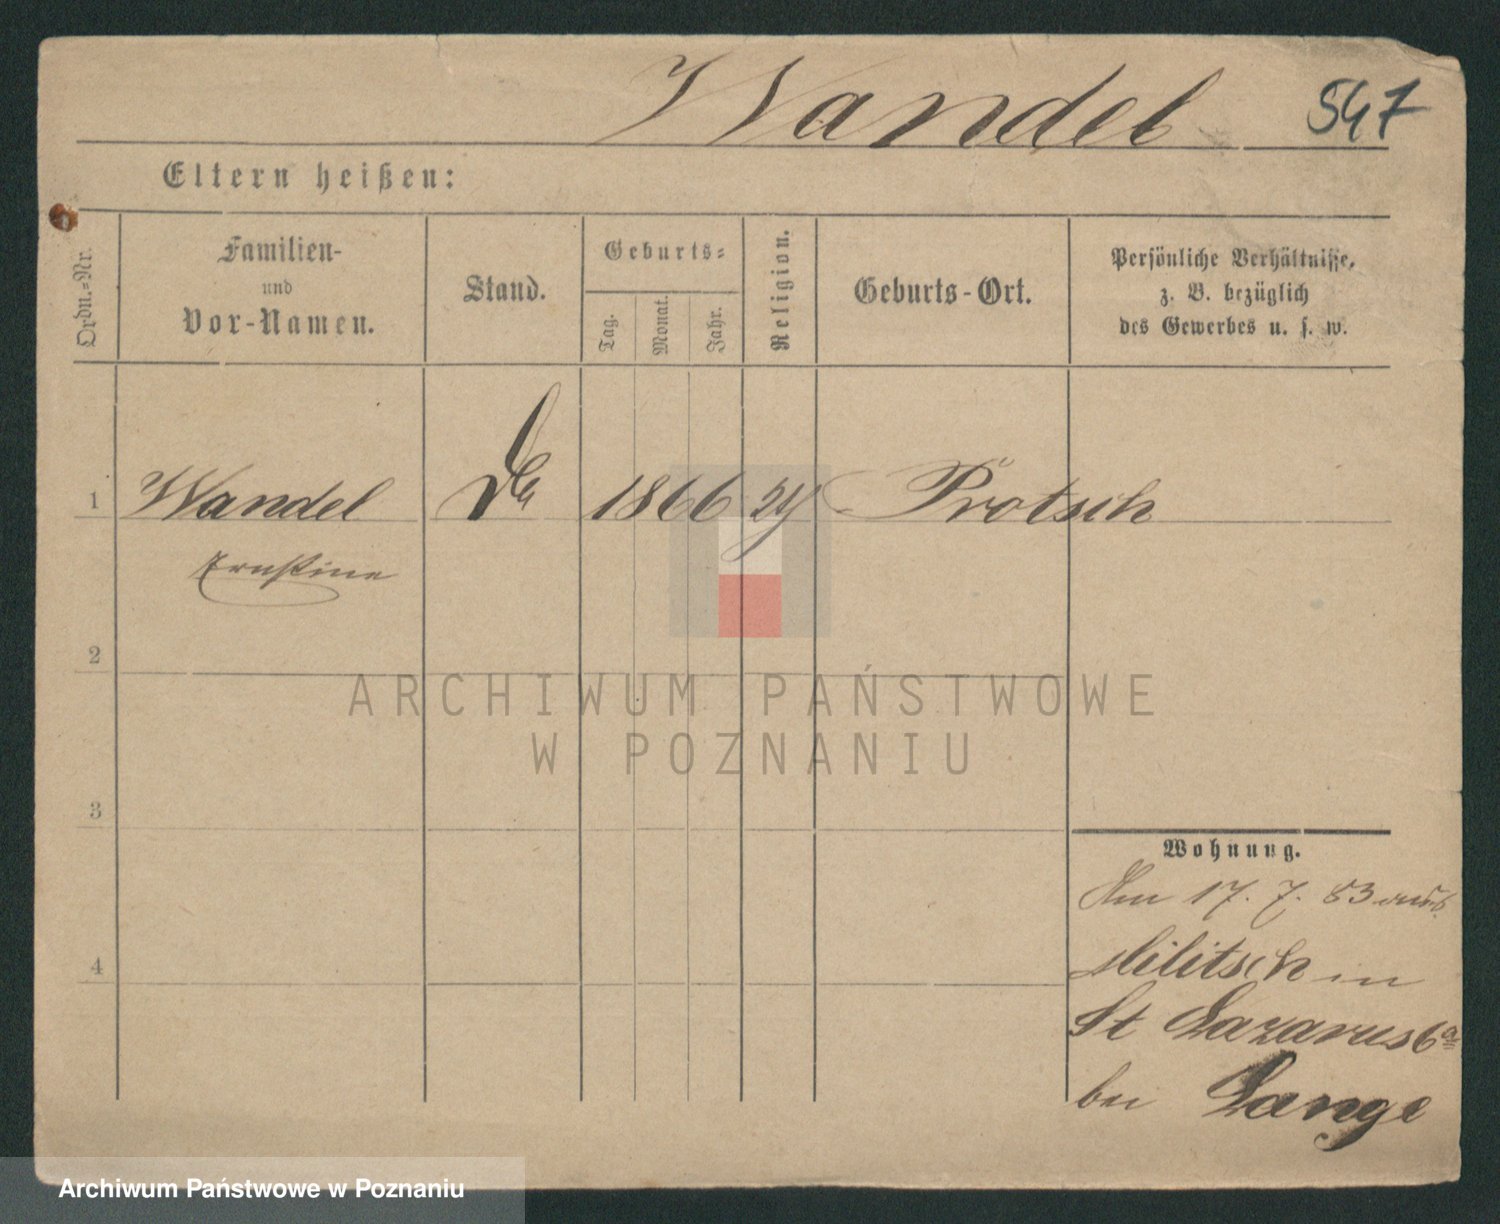 Wandel 547
Eltern heißen:
Ordn.-Nr.
Familien-
und
Vor-Namen.
Stand.
Geburts-
Tag.
Monat.
Jahr.
Religion.
Geburts-Ort.
Persönliche Verhältnisse,
z. B. bezüglich
des Gewerbes u. s. w.
1 Wandel 1866 Protsch
Ernstine
2
3
4
Wohnung.
Am 17. 7. 83 aus
Militsch in
St Lazarus 6a
bei Lange
ARCHIWUM PAŃSTWOWE
W POZNANIU
Archiwum Państwowe w Poznaniu